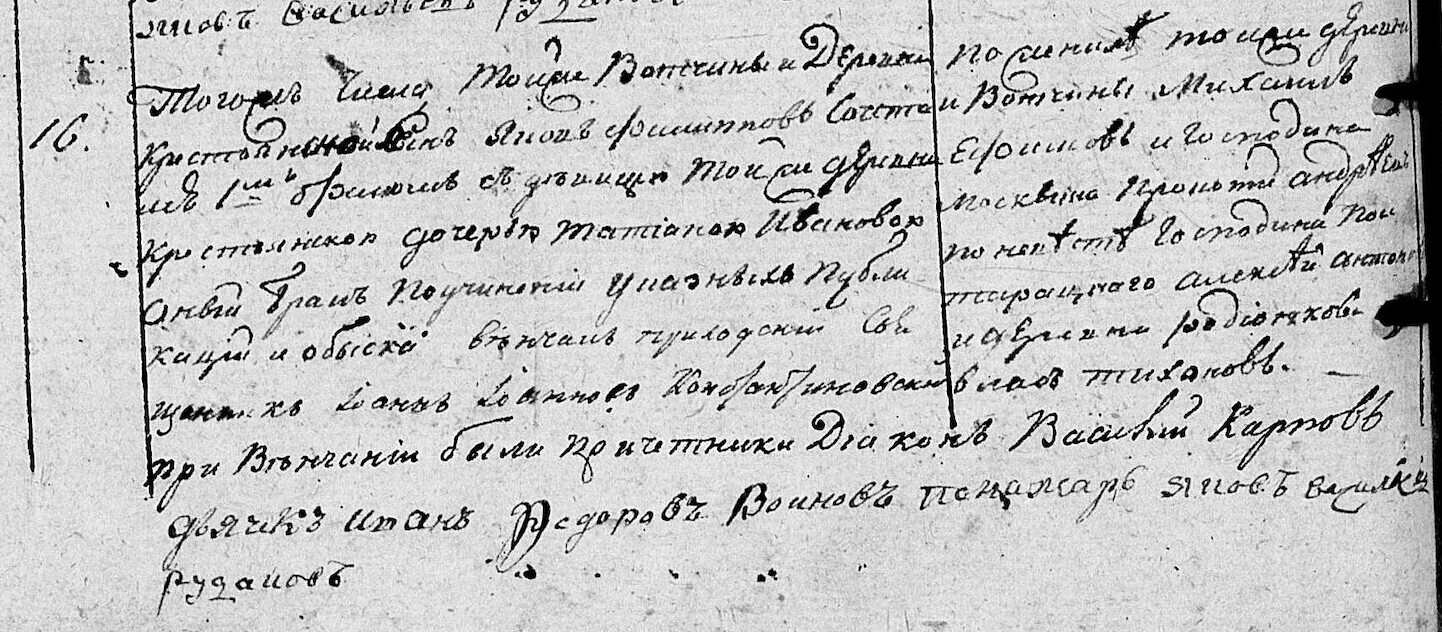 Яковъ Васильевъ Рудаковъ
16.
Тогожъ числа тойже Вотчины и Деревни
крестьянской сынъ Яковъ Филипповъ Сочета
нъ 1мъ бракомъ съ девицею тойже деревни
крестьянскою дочерью Татіаною Ивановою
Оный бракъ по учиненіи указныхъ публи
кацій и обыска венчалъ приходскій Свя
щенникъ Іоаннъ Іоанновъ Константиновскій
По женихе тойже деревни
и Вотчины Михаилъ
Ефимовъ и Господина
Москвина Прокофій Андреевъ
по невесте Господина
Алексей Антоновъ
и деревни Родіонкова
Власъ Тихоновъ.
при Венчаніи были причетники Діаконъ Василій Карповъ
дьячекъ Иванъ Федоровъ Воиновъ понамарь Яковъ Васильевъ
Рудаковъ